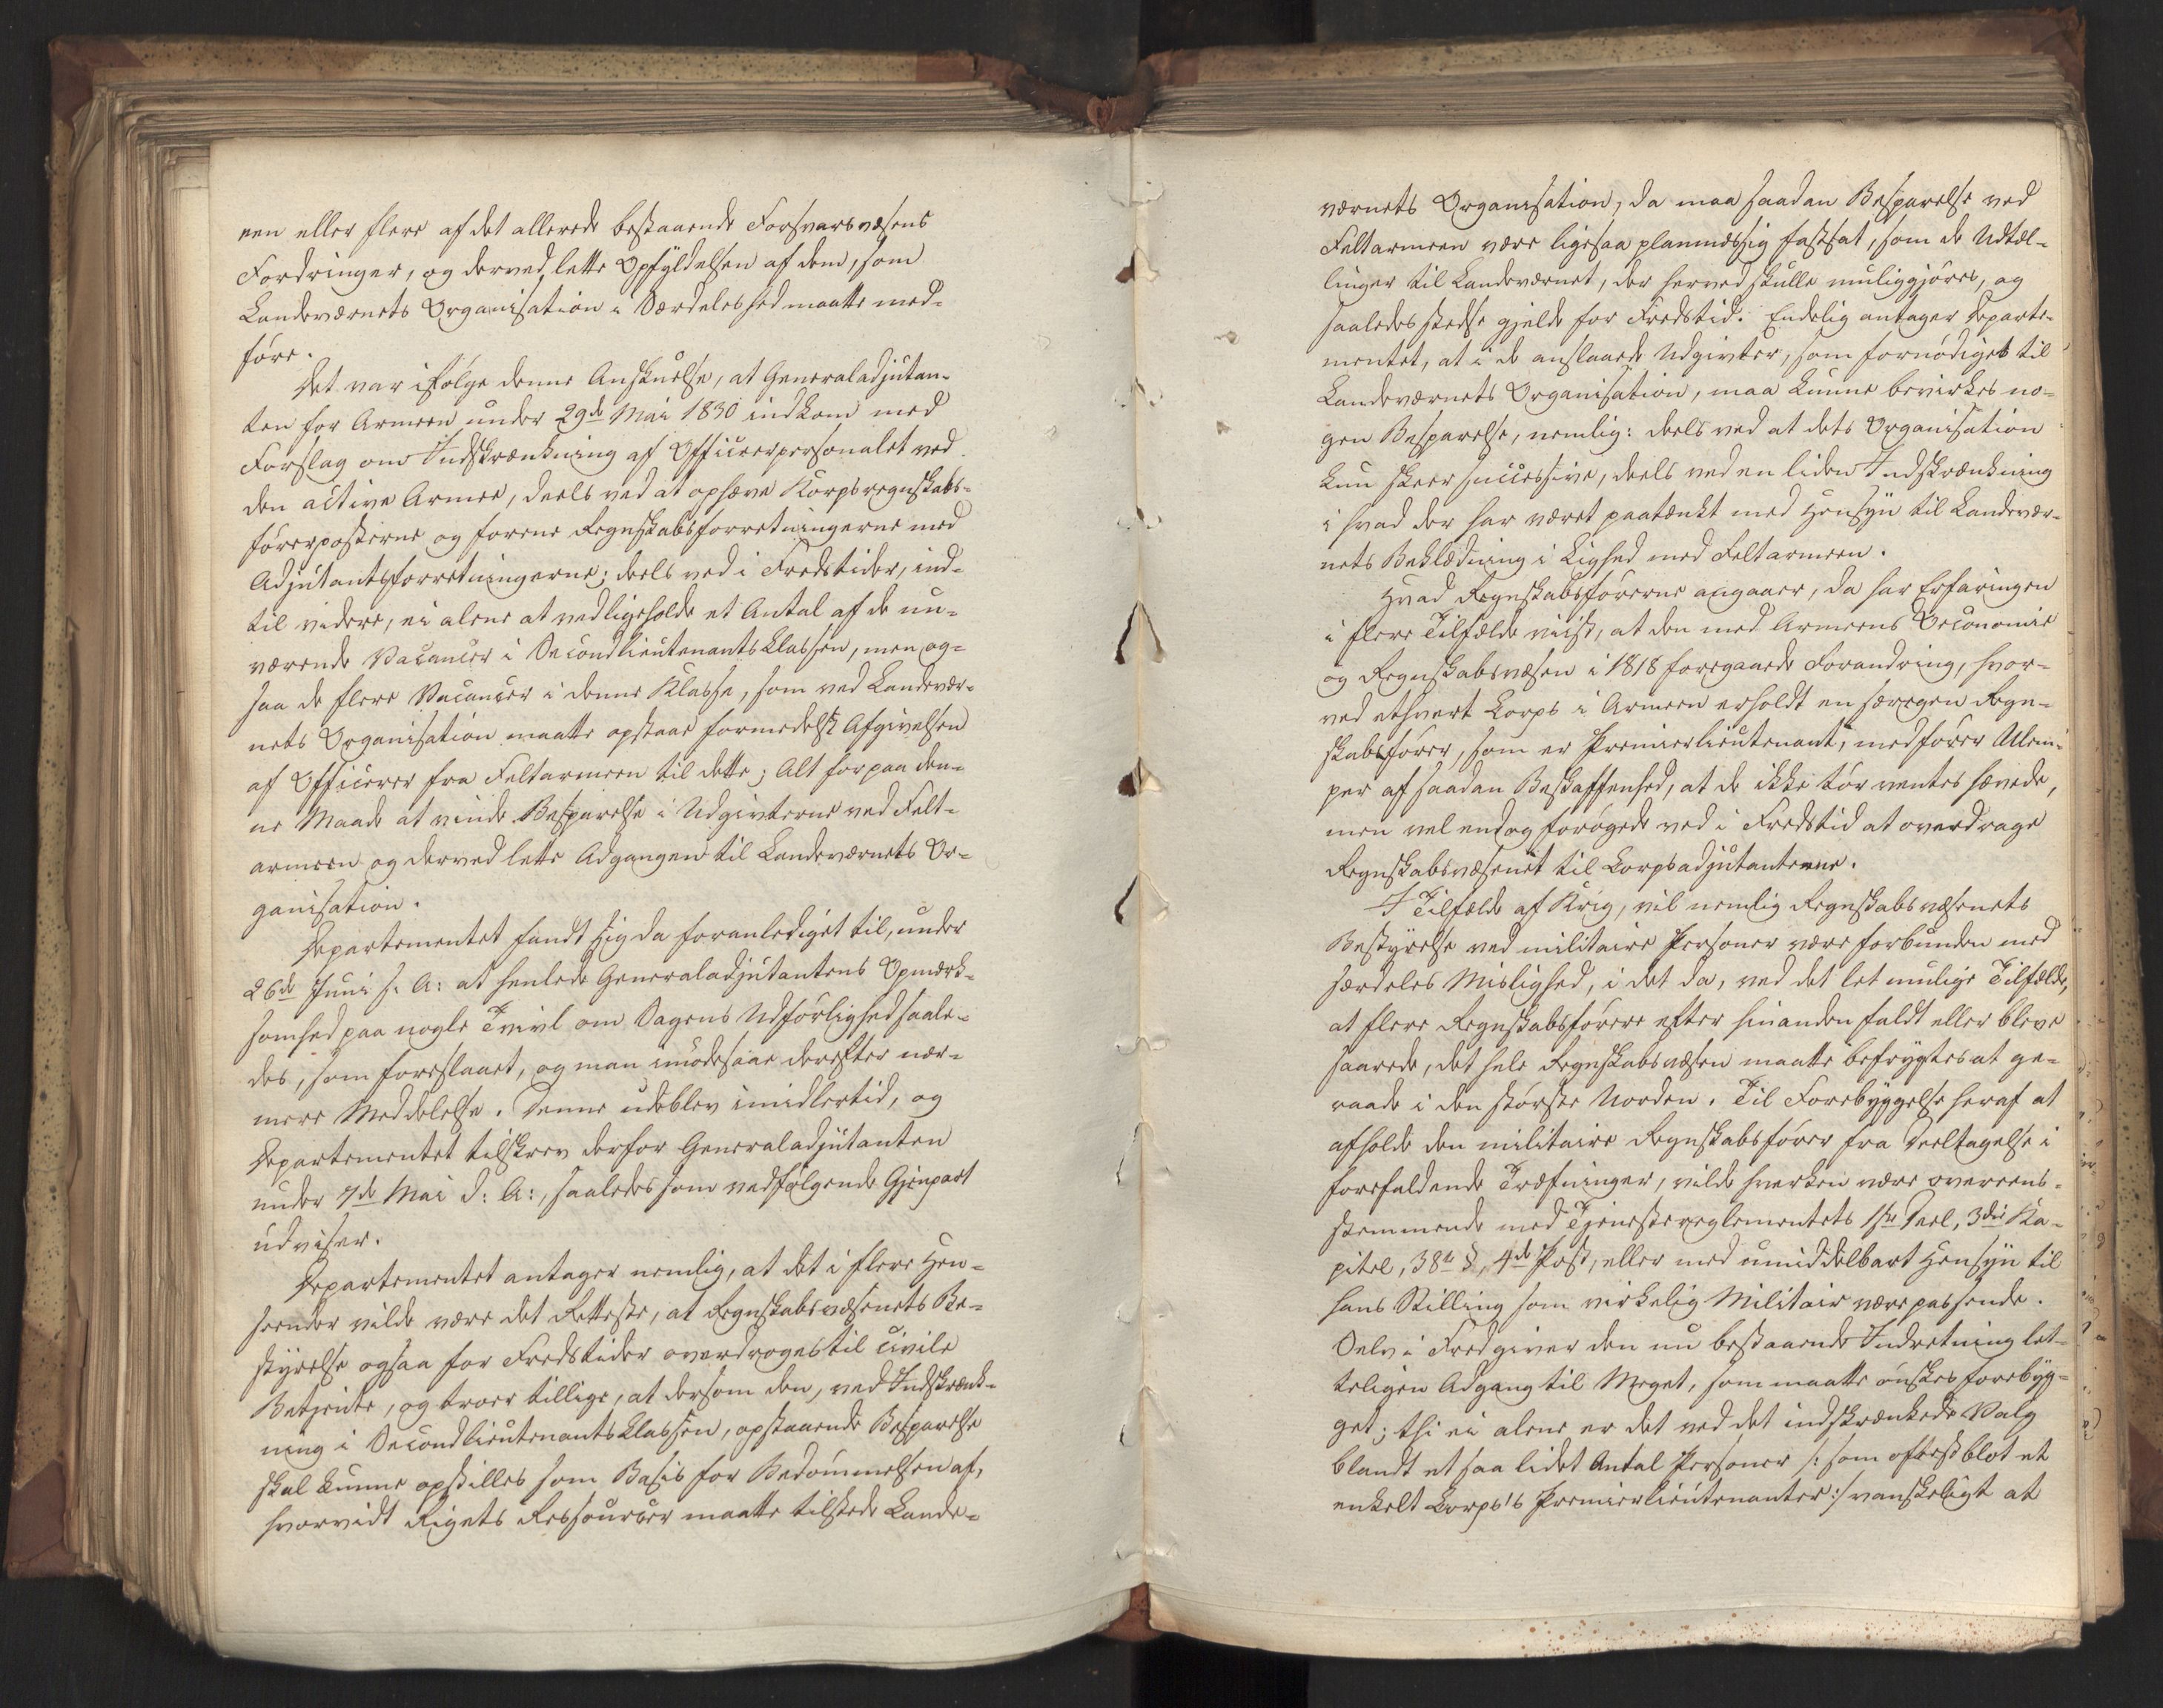 een eller flere af det allerede bestaaende Forsvarsvæsens
Fordringer, og derved lette Opfyldelsen af dem, som
Landeværnets Organisation i Særdeleshed maatte med-
føre.
Det var ifølge denne Anskuelse, at Generaladjutan-
ten for Armeen under 29de Mai 1830 indkom med
Forslag om Indskrænkning af Officeerpersonalet ved
den active Armee, deels ved at ophæve Korpsregnskabs-
førerposterne og forene Regnskabsforretningerne med
Adjutantsforretningerne; deels ved i Fredstider, ind-
til videre, ei alene at vedligeholde et Antal af de nu-
værende Vacancer i Secondlieutenantsklassen, men og-
saa de flere Vacancer i denne Klasse, som ved Landevær-
nets Organisation maatte opstaae formedelst Afgivelsen
af Officerer fra Feltarmeen til dette; Alt for paa den-
ne Maade at vinde Besparelse i Udgivterne ved Felt-
armeen og derved lette Adgangen til Landeværnets Or-
ganisation.
Departementet fandt sig da foranlediget til, under
26de Juni s. A: at henlede Generaladjutantens Opmærk-
somhed paa nogle Tvivl om Sagens Udførlighed saale-
des, som foreslaaet, og man imødesaae derefter nær-
mere Meddelelse. Denne udeblev imidlertid, og
Departementet tilskrev derfor Generaladjutanten
under 7de Mai d: A:, saaledes som vedfølgende Gjenpart
udviser.
Departementet antager nemlig, at det i flere Hen-
seender vilde være det Retteste, at Regnskabsvæsenets Be-
styrelse ogsaa for Fredstider overdroges til civile
Betjente, og troer tillige, at dersom den, ved Indskrænk-
ning i Secondlieutenantsklassen, opstaaende Besparelse
skal kunne opstilles som Basis for Bedømmelsen af,
hvorvidt Rigets Ressourcer maatte tilstede Lande-
værnets Organisation, da maa saadan Besparelse ved
Feltarmeen være ligesaa planmæssig fastsat, som de Udtæl-
linger til Landeværnet, der herved skulle muliggjøres, og
saaledes stedse gjelde for Fredstid. Endelig antager Departe-
mentet, at i de anslaaede Udgivter, som fornødiges til
Landeværnets Organisation, maa kunne bevirkes no-
gen Besparelse, nemlig: deels ved at dets Organisation
kun skeer successive, deels ved en liden Indskrænkning
i hvad der har været paatænkt med Hensyn til Landevær-
nets Beklædning i Lighed med Feltarmeen.
Hvad Regnskabsførerne angaaer, da har Erfaringen
i flere Tilfælde viist, at den med Armeens Oeconomie
og Regnskabsvæsen i 1818 foregaaede Forandring, hvor-
ved ethvert Corps i Armeen erholdt en særegen Regn-
skabsfører, som er Premierlieutenant, medfører Ulem-
per af saadan Beskaffenhed, at de ikke tør ventes hævede,
men vel endog forøgede ved i Fredstid at overdrage
Regnskabsvæsenet til Corpsadjutanterne.
I Tilfælde af Krig, vil nemlig Regnskabsvæsenets
Bestyrelse ved militaire Personer være forbunden med
særdeles Mislighed, i det da, ved det let mulige Tilfælde,
at flere Regnskabsførere efter hinanden faldt eller bleve
saarede, det hele Regnskabsvæsen maatte befrygtes at ge-
raade i den største Uorden. Til Forebyggelse heraf at
afholde den militaire Regnskabsfører fra Deeltagelse i
forefaldende Træfninger, vilde hverken være overeens-
stemmende med Tjenestereglementets 1ste Deel, 3die Ka-
pitel, 38te §, 4de Post, eller med umiddelbart Hensyn til
hans Stilling som virkelig Militair være passende.
Selv i Fred giver den nu bestaaende Indretning let-
teligen Adgang til Meget, som maatte ønskes forebyg-
get; thi ei alene er det ved det indskrænkede Valg
blandt et saa lidet Antal Personer /: som oftest blot et
enkelt Corps's Premierlieutenanter :/ vanskeligt at